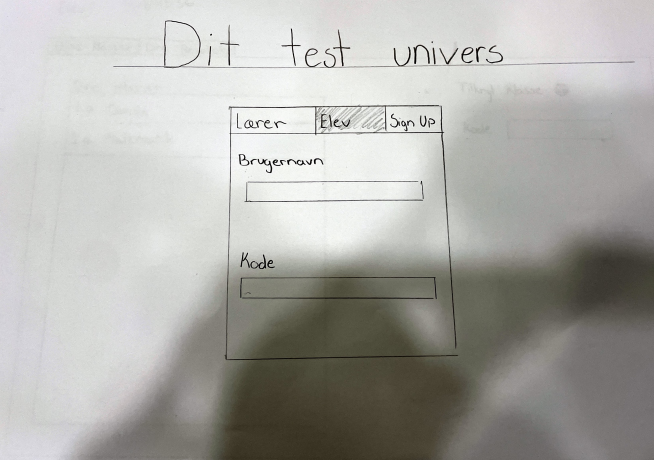 Dit test univers
Lærer Elev Sign Up
Brugernavn
Kode